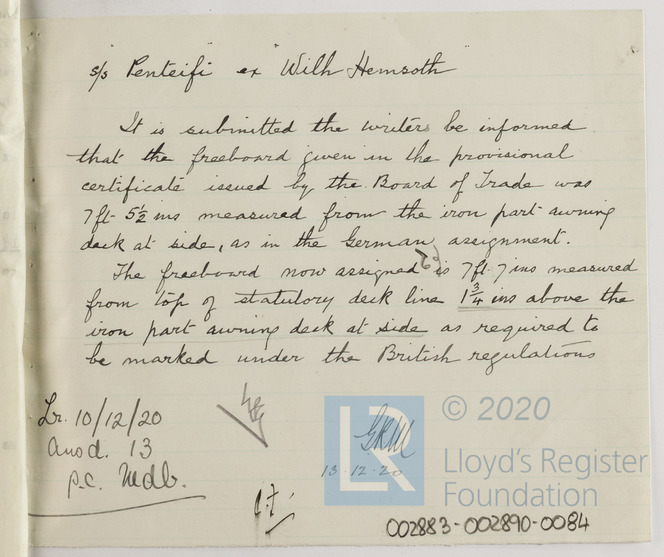 s/s "Penteifi" ex "Wilh Hemsoth"
It is submitted the writers be informed
that the freeboard given in the provisional
certificate issued by the Board of Trade was
7ft- 5½ ins measured from the iron part awning
deck at side, as in the German assignment.
The freeboard now assigned is 7ft-7ins measured
from top of statutory deck line 1¾ ins above the
iron part awning deck at side as required to
be marked under the British regulations
Lr. 10/12/20
Ansd. 13
p.c. Mdb.
GRM
13-12-20
LR
© 2020
Lloyd's Register
Foundation
002883-002890-0084